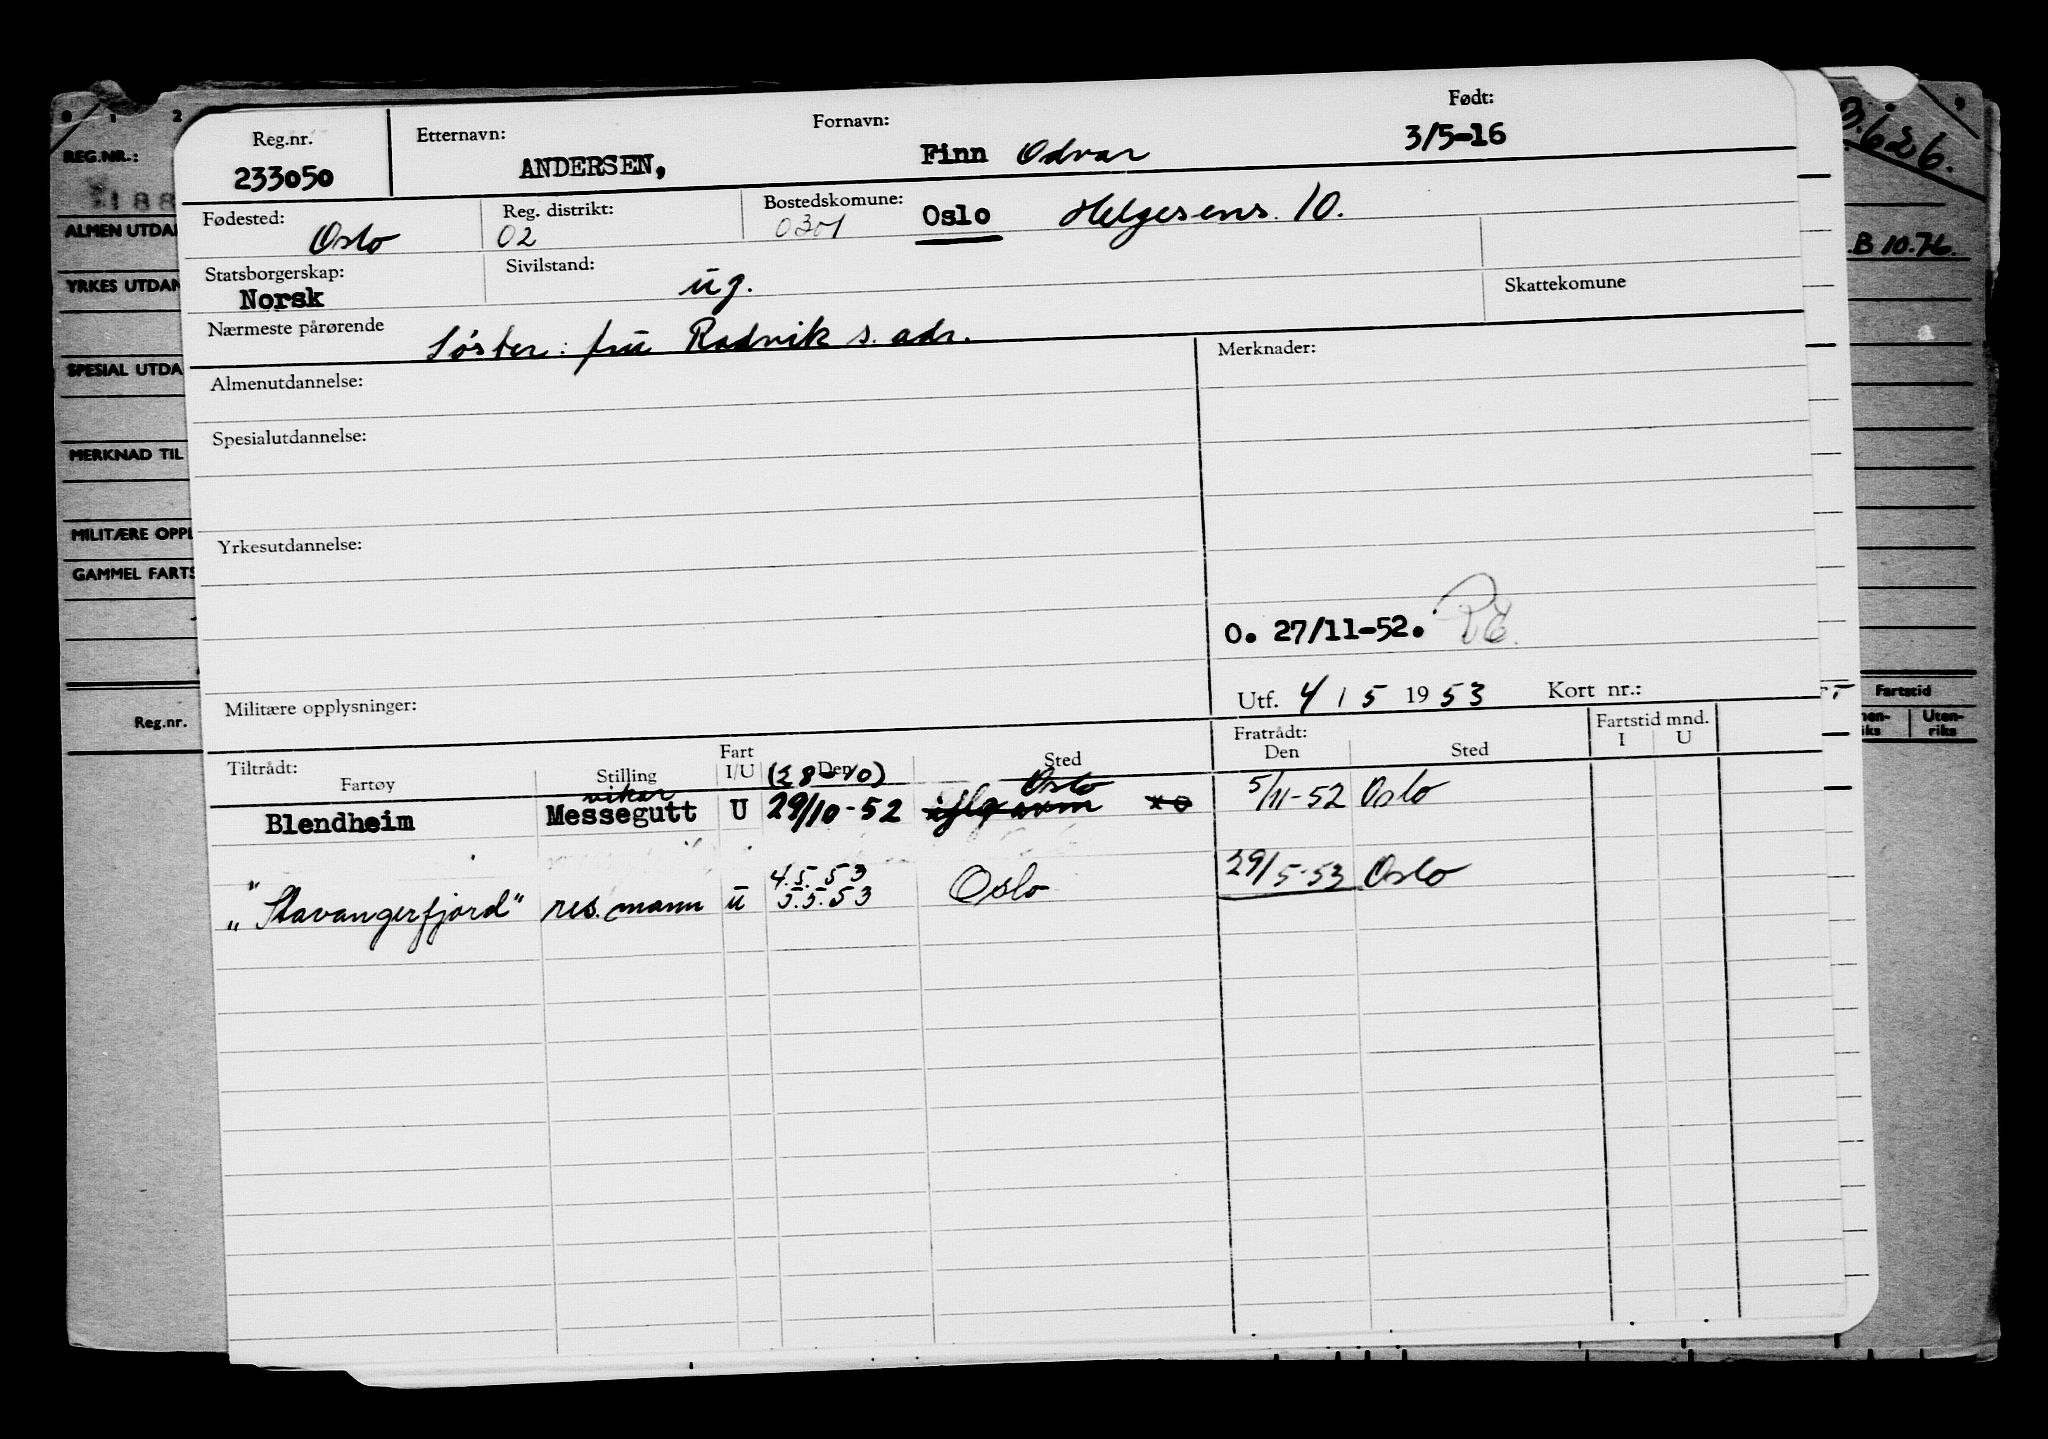 Reg.nr. Etternavn: Fornavn: Født:
233050 ANDERSEN, Finn Odvar 3/5-16
Fødested: Reg. distrikt: Bostedskomune:
Oslo 02 0301 Oslo Helgesens. 10.
Statsborgerskap: Sivilstand: Skattekomune
Norsk ug.
Nærmeste pårørende Søster: fru Radvik s. adr.
Almenutdannelse: Merknader:
Spesialutdannelse:
Yrkesutdannelse:
O. 27/11-52.
Militære opplysninger: Utf. 4/5 1953 Kort nr.:
Tiltrådt: Fratrådt: Fartstid mnd.
Fartøy Stilling Fart I/U Den Sted Den Sted I U
vikar (28-10) Oslo
Blendheim Messegutt U 29/10-52 5/11-52 Oslo
4.5.53
"Stavangerfjord" res. mann u 5.5.53 Oslo 29/5-53 Oslo
0 1 2
REG.NR.:
188
ALMEN UTDA
YRKES UTDAN
SPESIAL UTDA
MERKNAD TIL
MILITÆRE OPPL
GAMMEL FARTS
Reg.nr.
9
.626.
B 10.76.
Fartstid
nen-
iks
Uten-
riks